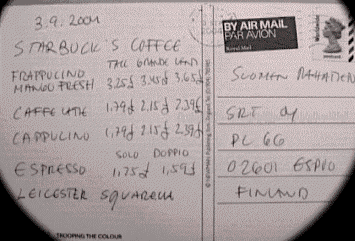 3.9.2001
STARBUCK'S COFFEE
TALL GRANDE
FRAPPUCINO
MANGO FRESH 3.25£ 3.45£ 3.65£
CAFFE LATE 1,79£ 2.15£ 2,39£
CAPPUCINO 1,79£ 2.15£ 2.39£
SOLO DOPPIO
ESPRESSO 1,25£ 1,59£
LEICESTER
TROOPING THE COLOUR
BY AIR MAIL
PAR AVION
Royal Mail
SUOMEN
SRT oy
PL 66
02601 ESPOO
FINLAND